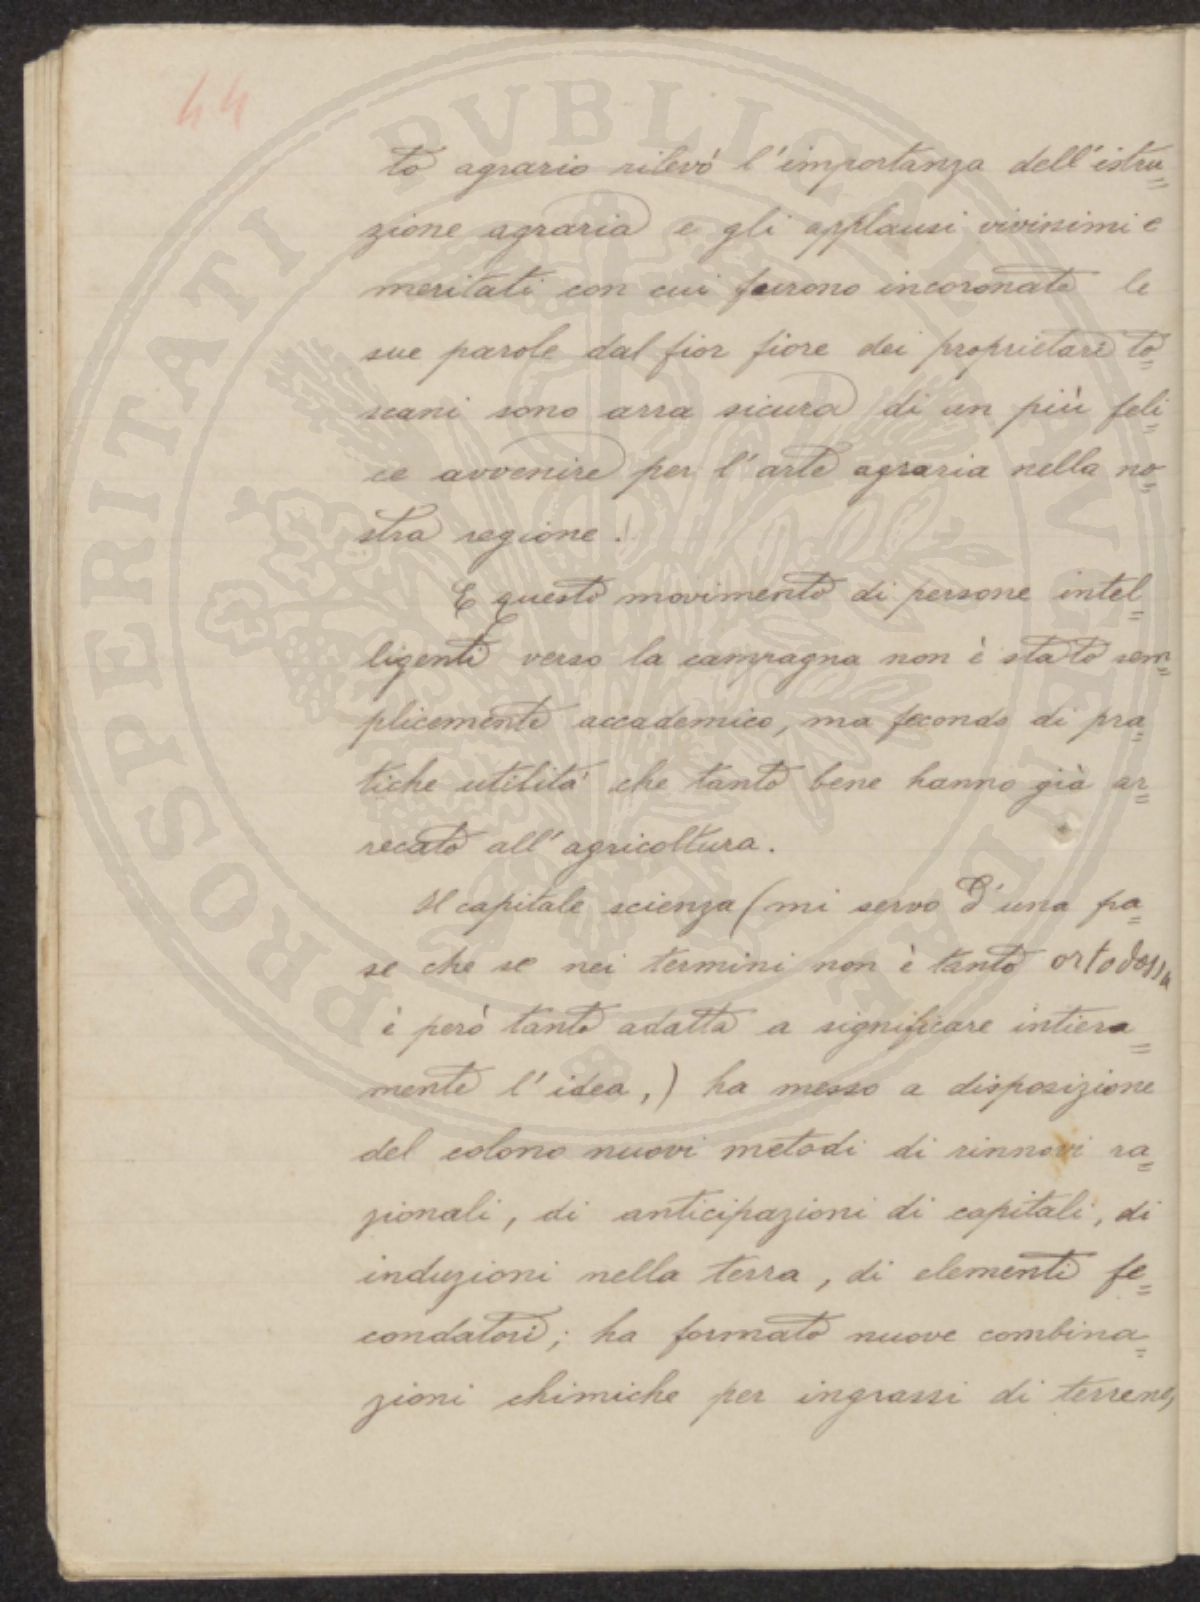 44
to agrario rilevò l'importanza dell'istru=
zione agraria e gli applausi vivissimi e
meritati con cui furono incoronate le
sue parole dal fior fiore dei proprietari to=
scani sono arra sicura di un più feli=
ce avvenire per l'arte agraria nella no=
stra regione!
E questo movimento di persone intel=
ligenti verso la campagna non è stato sem=
plicemente accademico, ma fecondo di pra=
tiche utilità che tanto bene hanno già ar=
recato all'agricoltura.
Il capitale scienza (mi servo d'una fra=
se che se nei termini non è tanto ortodossa
è però tanto adatta a significare intiera=
mente l'idea,) ha messo a disposizione
del colono nuovi metodi di rinnovi ra=
zionali, di anticipazioni di capitali, di
induzioni nella terra, di elementi fe=
condatori; ha formato nuove combina=
zioni chimiche per ingrassi di terreno,
PROSPERITATI PVBLICAE AVGENDAE